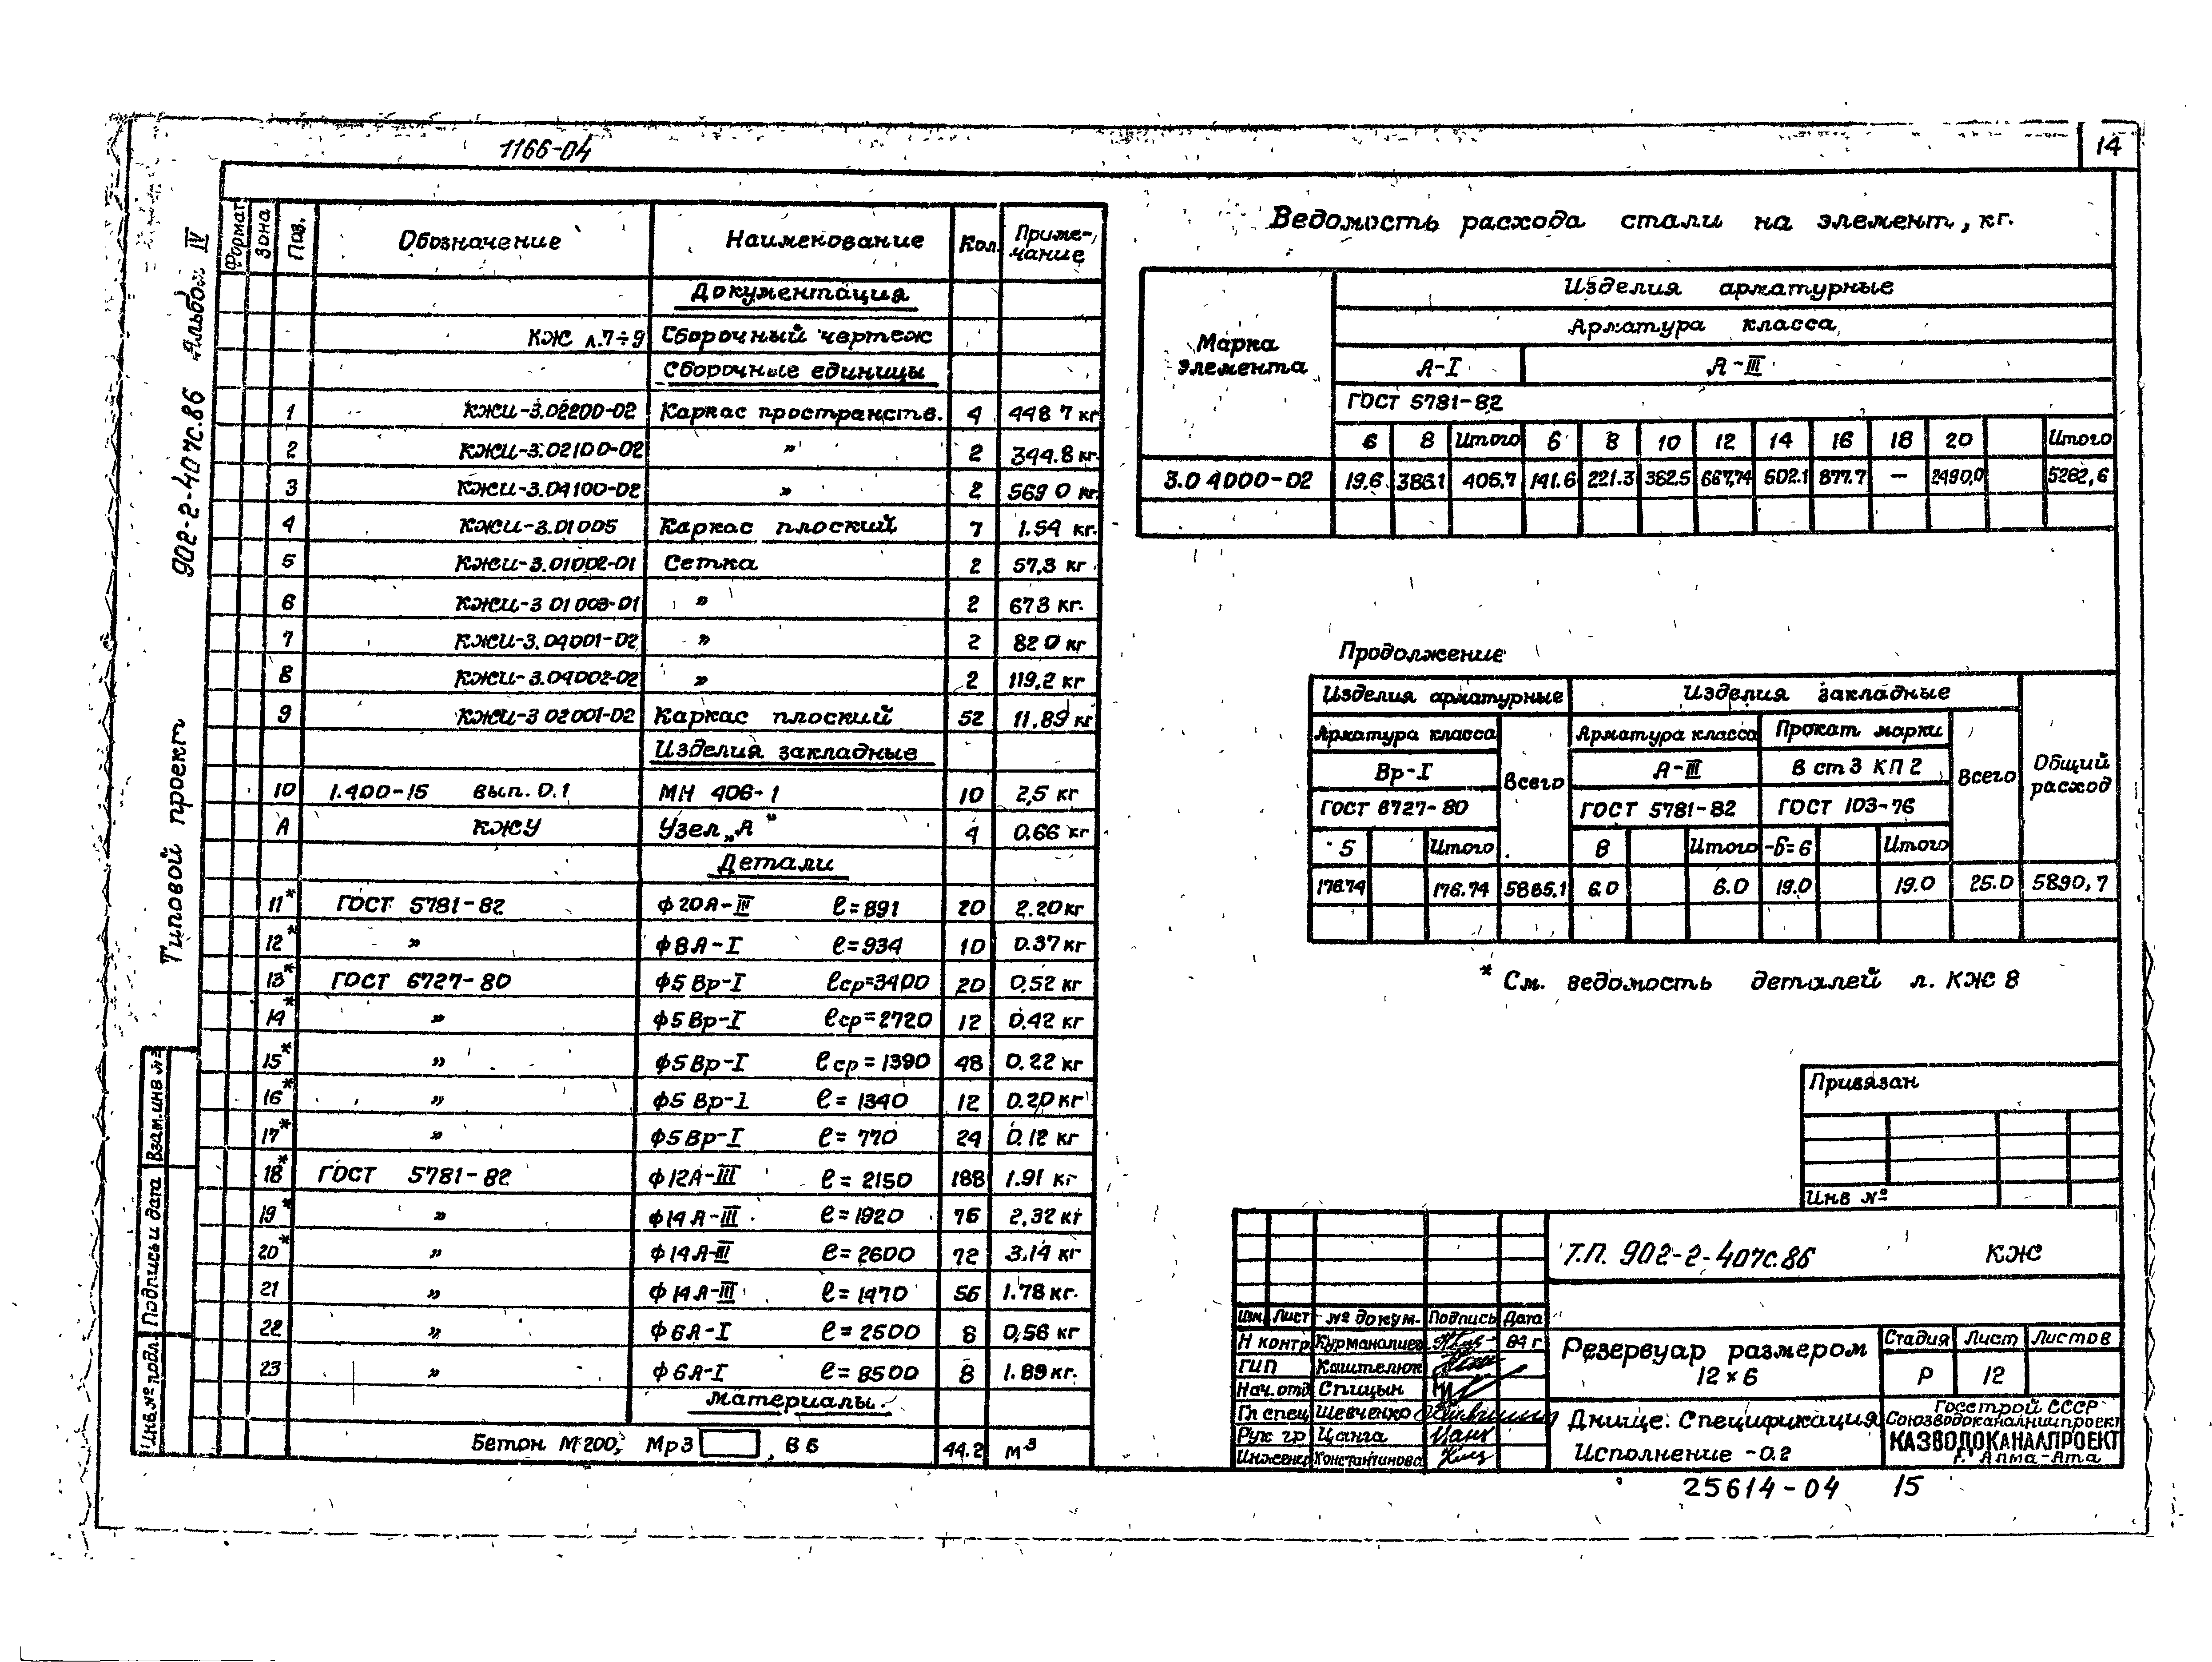 1166-04
14
Типовой проект 902-2-407с.86 Альбом IV
Формат Зона Поз. Обозначение Наименование Кол. Приме-чание
Документация
КЖ л.7÷9 Сборочный чертеж
Сборочные единицы
1 КЖИ-3.02200-02 Каркас пространств. 4 448 7 кг
2 КЖИ-3.02100-02 " 2 344.8 кг.
3 КЖИ-3.04100-02 " 2 569 0 кг.
4 КЖИ-3.01005 Каркас плоский 7 1.54 кг.
5 КЖИ-3.01002-01 Сетка 2 57,3 кг
6 КЖИ-3 01 003-01 " 2 673 кг.
7 КЖИ-3.04001-02 " 2 82 0 кг
8 КЖИ-3.04002-02 " 2 119,2 кг
9 КЖИ-3 02001-02 Каркас плоский 52 11.89 кг
Изделия закладные
10 1.400-15 вып. 0.1 МН 406-1 10 2,5 кг
А КЖУ Узел „А" 4 0.66 кг
Детали
11* ГОСТ 5781-82 ф20А-III ℓ=891 20 2.20 кг
12* " ф8А-I ℓ=934 10 0.37 кг
13* ГОСТ 6727-80 ф5 Вр-I ℓср=3400 20 0,52 кг
14* " ф5 Вр-I ℓср=2720 12 0.42 кг
15* " ф5 Вр-I ℓср=1390 48 0.22 кг
16* " ф5 Вр-1 ℓ=1340 12 0.20 кг
17* " ф5 Вр-I ℓ=770 24 0.12 кг
18* ГОСТ 5781-82 ф12А-III ℓ=2150 188 1.91 кг
19* " ф14А-III ℓ=1920 76 2,32 кг
20* " ф14А-III ℓ=2600 72 3.14 кг
21 " ф14А-III ℓ=1470 56 1.78 кг.
22 " ф6А-I ℓ=2500 8 0,56 кг
23 " ф6А-I ℓ=8500 8 1.89 кг.
Материалы.
Бетон М200, Мрз , В6 44.2 м³
Взам.инв №
Подпись и дата
Инв.№ подл.
Ведомость расхода стали на элемент, кг.
Марка элемента
Изделия арматурные
Арматура класса
А-I А-III
ГОСТ 5781-82
6 8 Итого 6 8 10 12 14 16 18 20 Итого
3.04000-02 19.6 386.1 406.7 141.6 221.3 362.5 667,74 502.1 877.7 — 2490,0 5262,6
Продолжение
Изделия арматурные Изделия закладные Общий расход
Арматура класса Всего Арматура класса Прокат марки Всего
Вр-I А-III В ст 3 КП 2
ГОСТ 6727-80 ГОСТ 5781-82 ГОСТ 103-76
5 Итого 8 Итого -δ=6 Итого
176.74 176.74 5865.1 6.0 6.0 19.0 19.0 25.0 5890,7
* См. ведомость деталей л. КЖ 8
Привязан
Инв №
Т.П. 902-2-407с.86 КЖ
Изм. Лист № докум. Подпись Дата
Н контр Курманалиев 84 г
ГИП Каштелюк
Нач.отд Спицын
Гл спец Шевченко
Рук гр Цанга
Инженер Константинова
Резервуар размером
12×6
Стадия Лист Листов
Р 12
Днище. Спецификация
Исполнение -02
Госстрой СССР
Союзводоканалниипроект
КАЗВОДОКАНАЛПРОЕКТ
г. Алма-Ата
25614-04 15